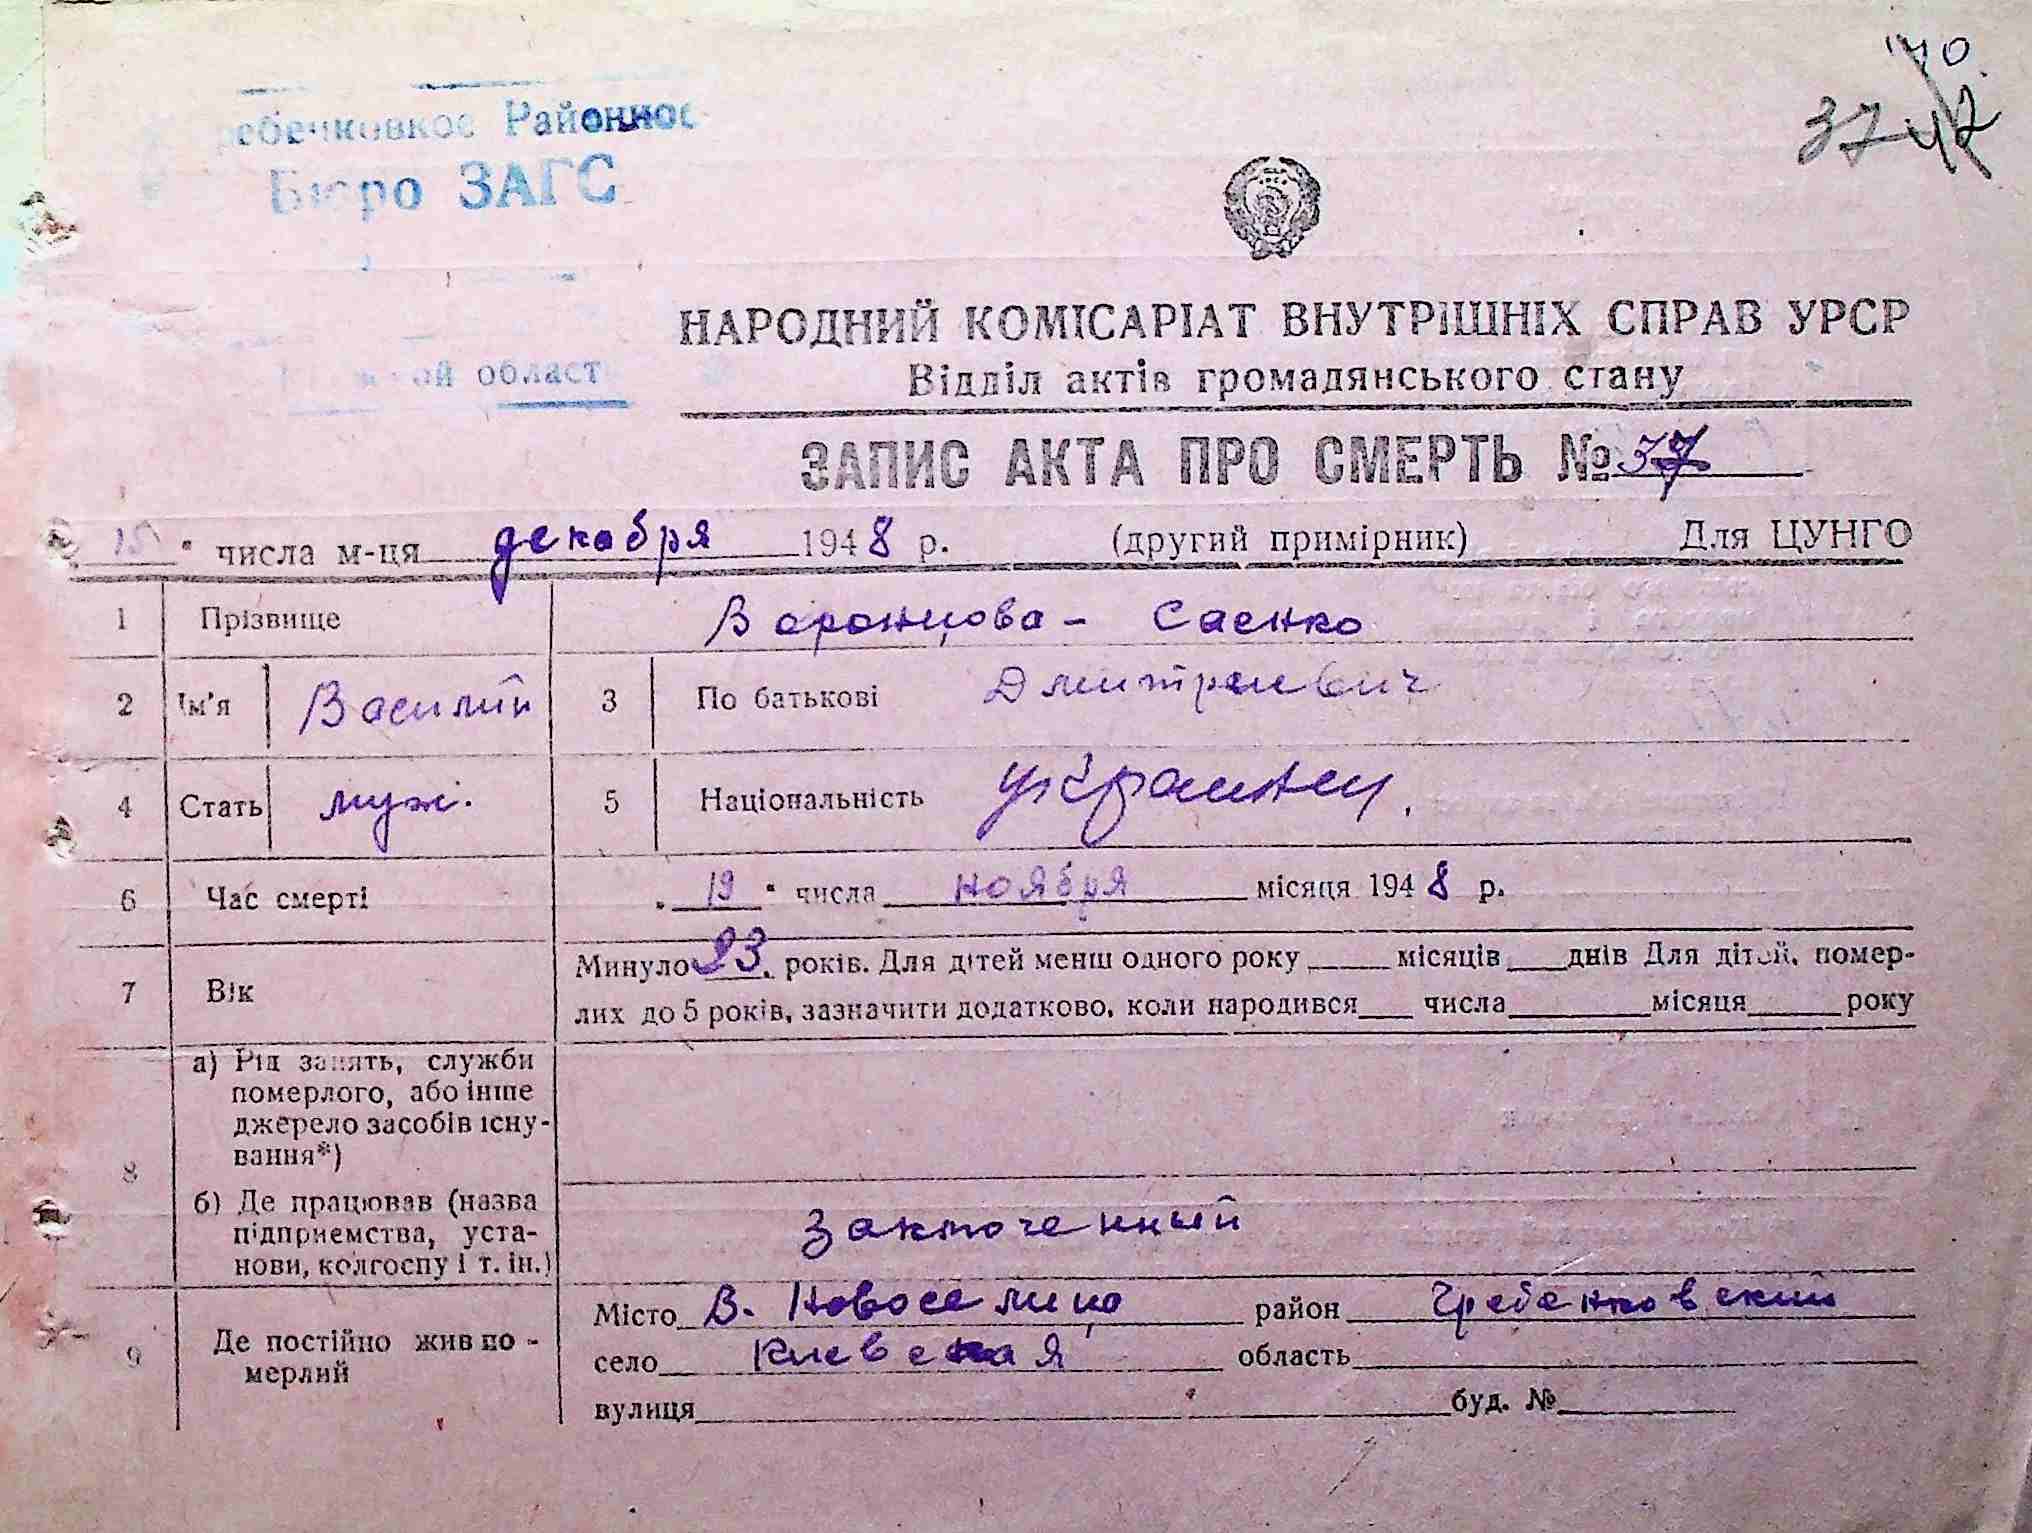 40
37 42
ребенковкое Районное
Бюро ЗАГС
ой област
НАРОДНИЙ КОМІСАРІАТ ВНУТРІШНІХ СПРАВ УРСР
Відділ актів громадянського стану
ЗАПИС АКТА ПРО СМЕРТЬ № 37
15 " числа м-ця декабря 1948 р. (другий примірник) Для ЦУНГО
1 Прізвище Воронцова - Саенко
2 Ім'я Василий 3 По батькові Дмитриевич
4 Стать муж. 5 Національність украинец.
6 Час смерті „ 19 " числа ноября місяця 1948 р.
7 Вік Минуло 23. років. Для дітей менш одного року ___ місяців ___ днів Для дітей, помер-
лих до 5 років, зазначити додатково, коли народився ___ числа ___ місяця ___ року
8 а) Рід занять, служби
померлого, або інше
джерело засобів існу-
вання*)
б) Де працював (назва
підприемства, уста-
нови, колгоспу і т. ін.) Заключенный
9 Де постійно жив по-
мерлий
Місто В. Новоселица район Гребенковский
село Киевская область
вулиця буд. №